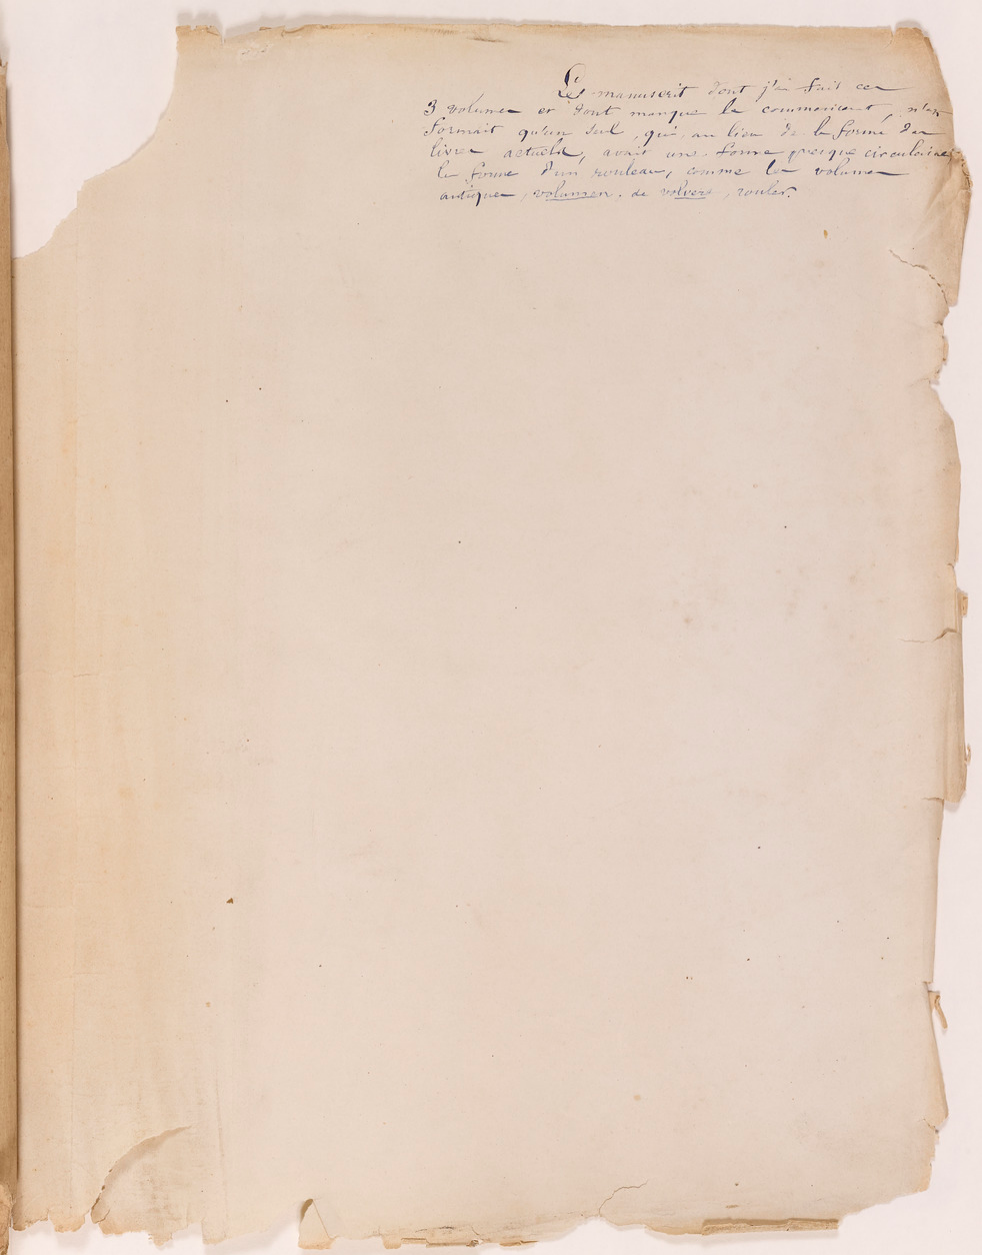 Le manuscrit dont j'ai fait ces
3 volumes et dont manque le commencent, n'en
formait qu'un seul, qui, au lieu de la forme des
livres actuels, avait une forme presque circulaire,
la forme d'un rouleau, comme les volumes
antiques, volumen, de volvere, rouler.